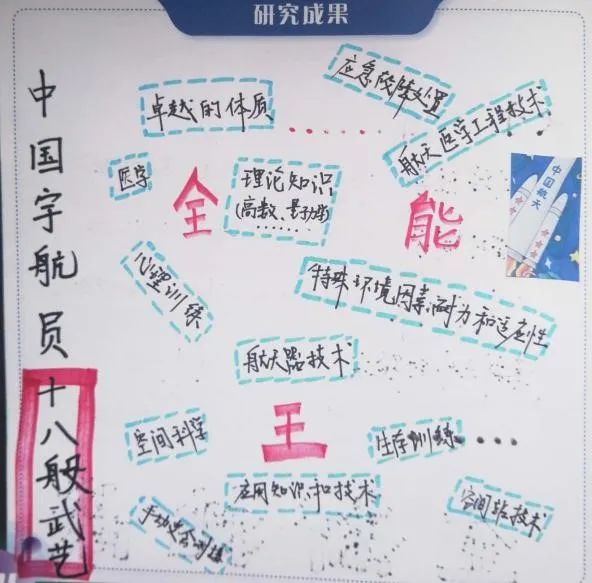 研究成果
中国宇航员十八般武艺
应急故障处置
卓越的体质
......
航天医学工程技术
医学
全
理论知识
(高数、量子力学)
......
能
中国航天
心理训练
特殊环境因素耐力和适应性
航天器技术
空间科学
王
生存训练
...
应用知识和技术
空间站技术
手动交会训练